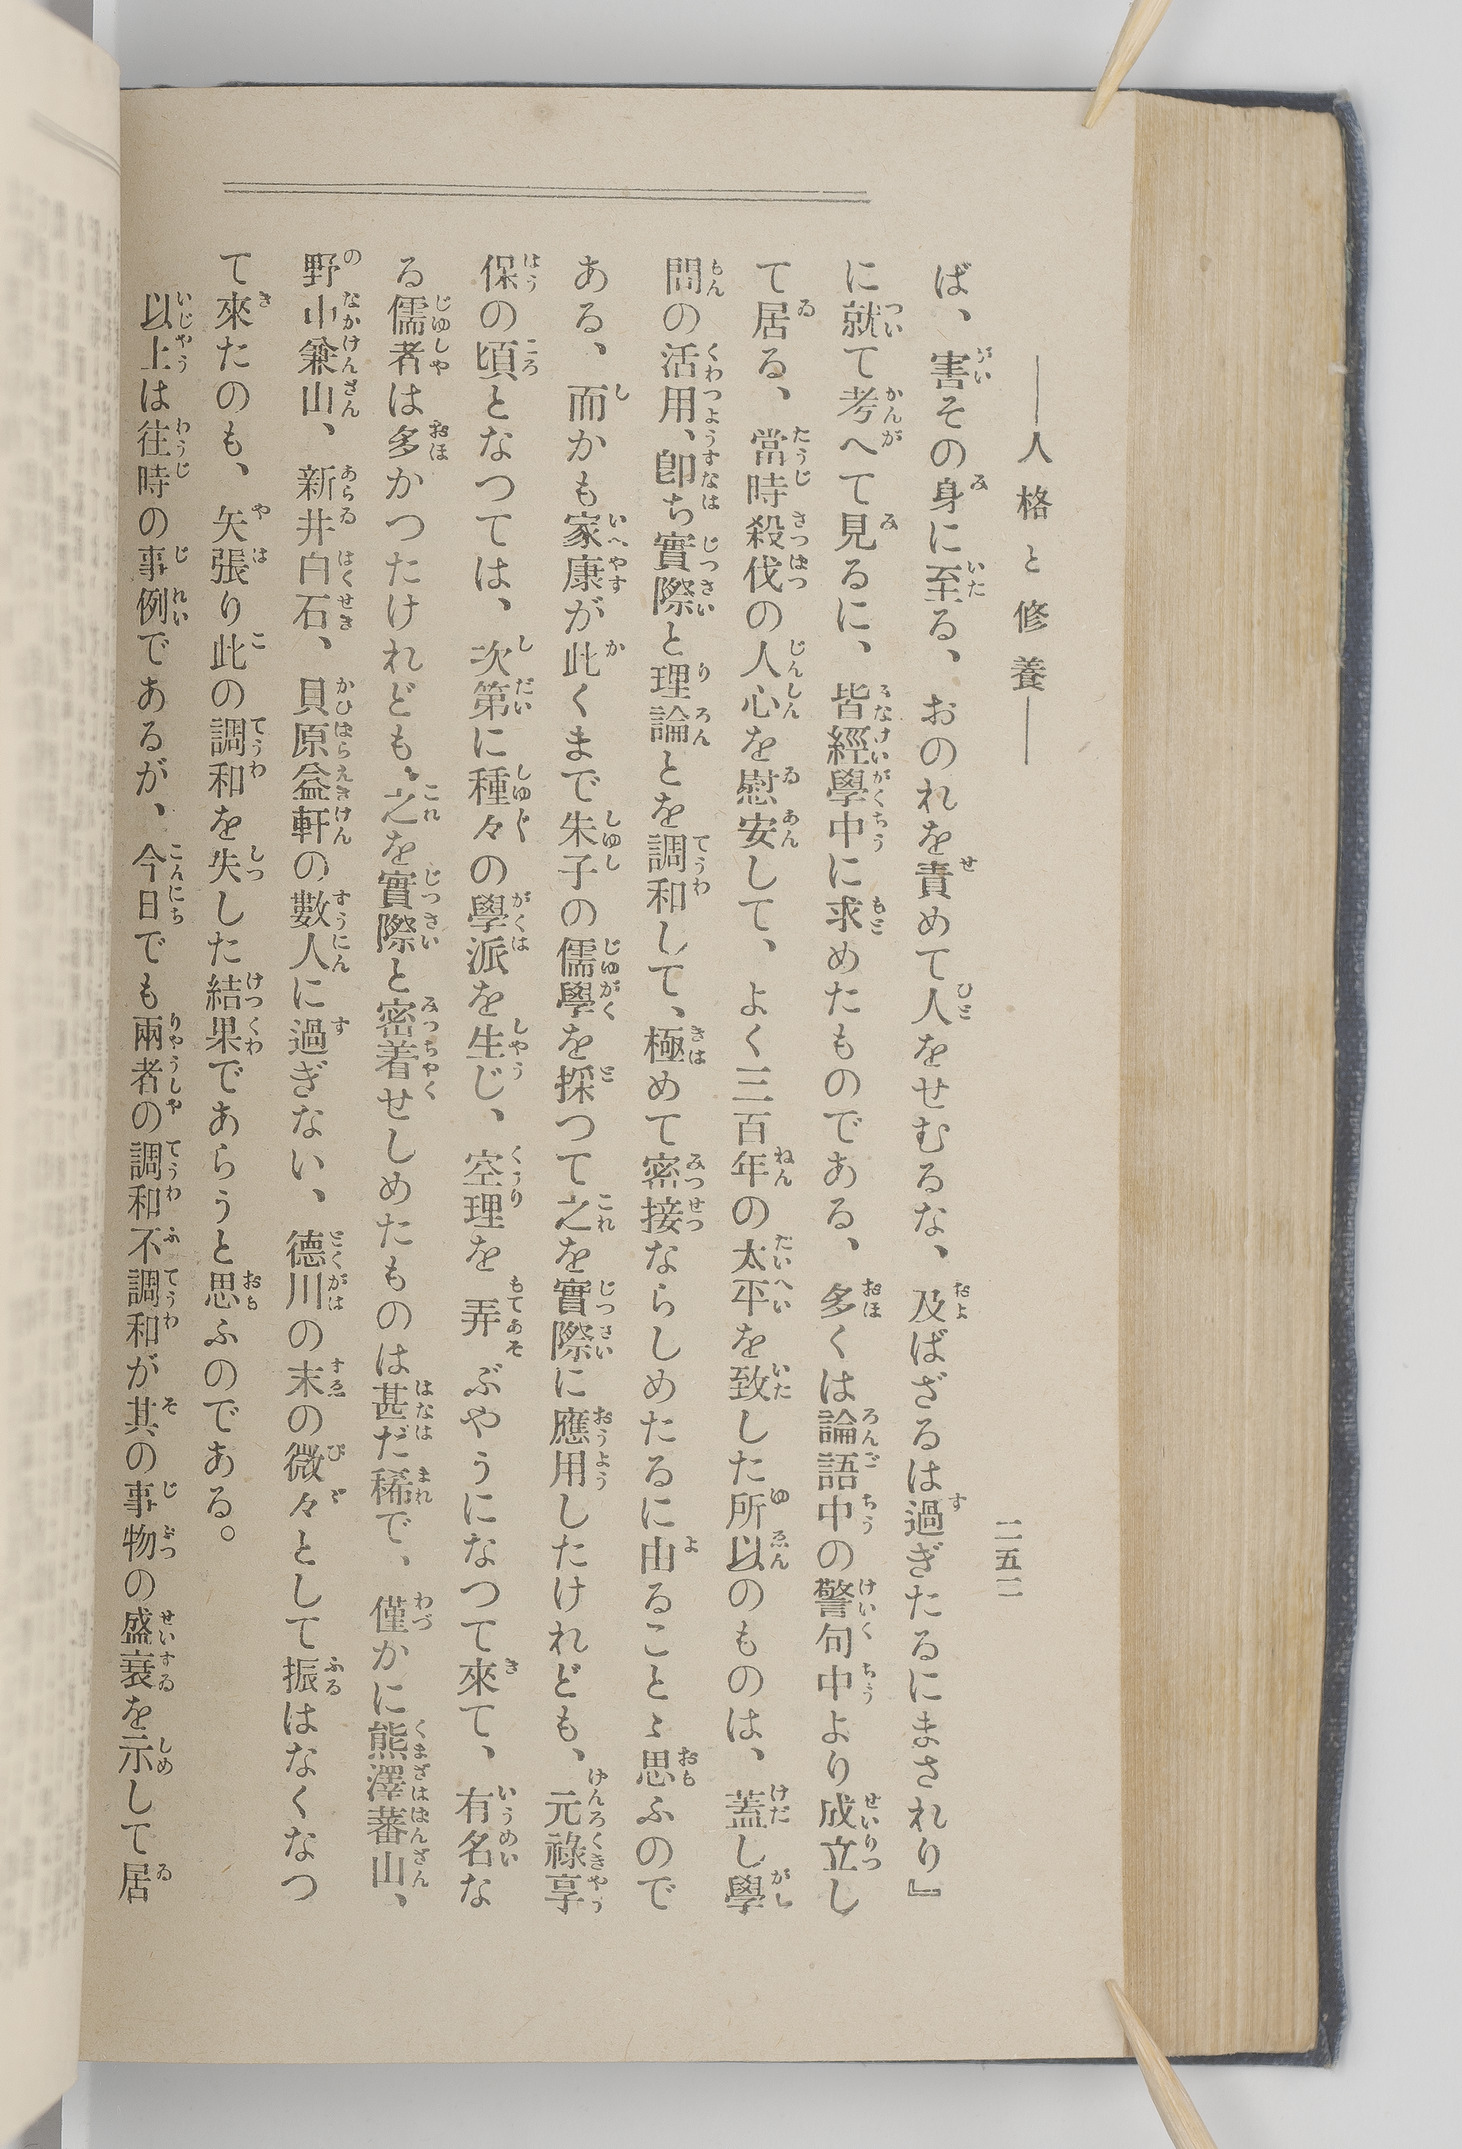 ――人格と修養――
二五二
ば、害その身に至る、おのれを責めて人をせむるな、及ばざるは過ぎたるにまされり』
に就て考へて見るに、皆經學中に求めたものである、多くは論語中の警句中より成立し
て居る、當時殺伐の人心を慰安して、よく三百年の太平を致した所以のものは、蓋し學
問の活用、即ち實際と理論とを調和して、極めて密接ならしめたるに由ることゝ思ふので
ある、而かも家康が此くまで朱子の儒學を採つて之を實際に應用したけれども、元祿享
保の頃となつては、次第に種々の學派を生じ、空理を弄ぶやうになつて來て、有名な
る儒者は多かつたけれども、之を實際と密着せしめたものは甚だ稀で、僅かに熊澤蕃山、
野中兼山、新井白石、貝原益軒の數人に過ぎない、德川の末の微々として振はなくなつ
て來たのも、矢張り此の調和を失した結果であらうと思ふのである。
以上は往時の事例であるが、今日でも兩者の調和不調和が其の事物の盛衰を示して居